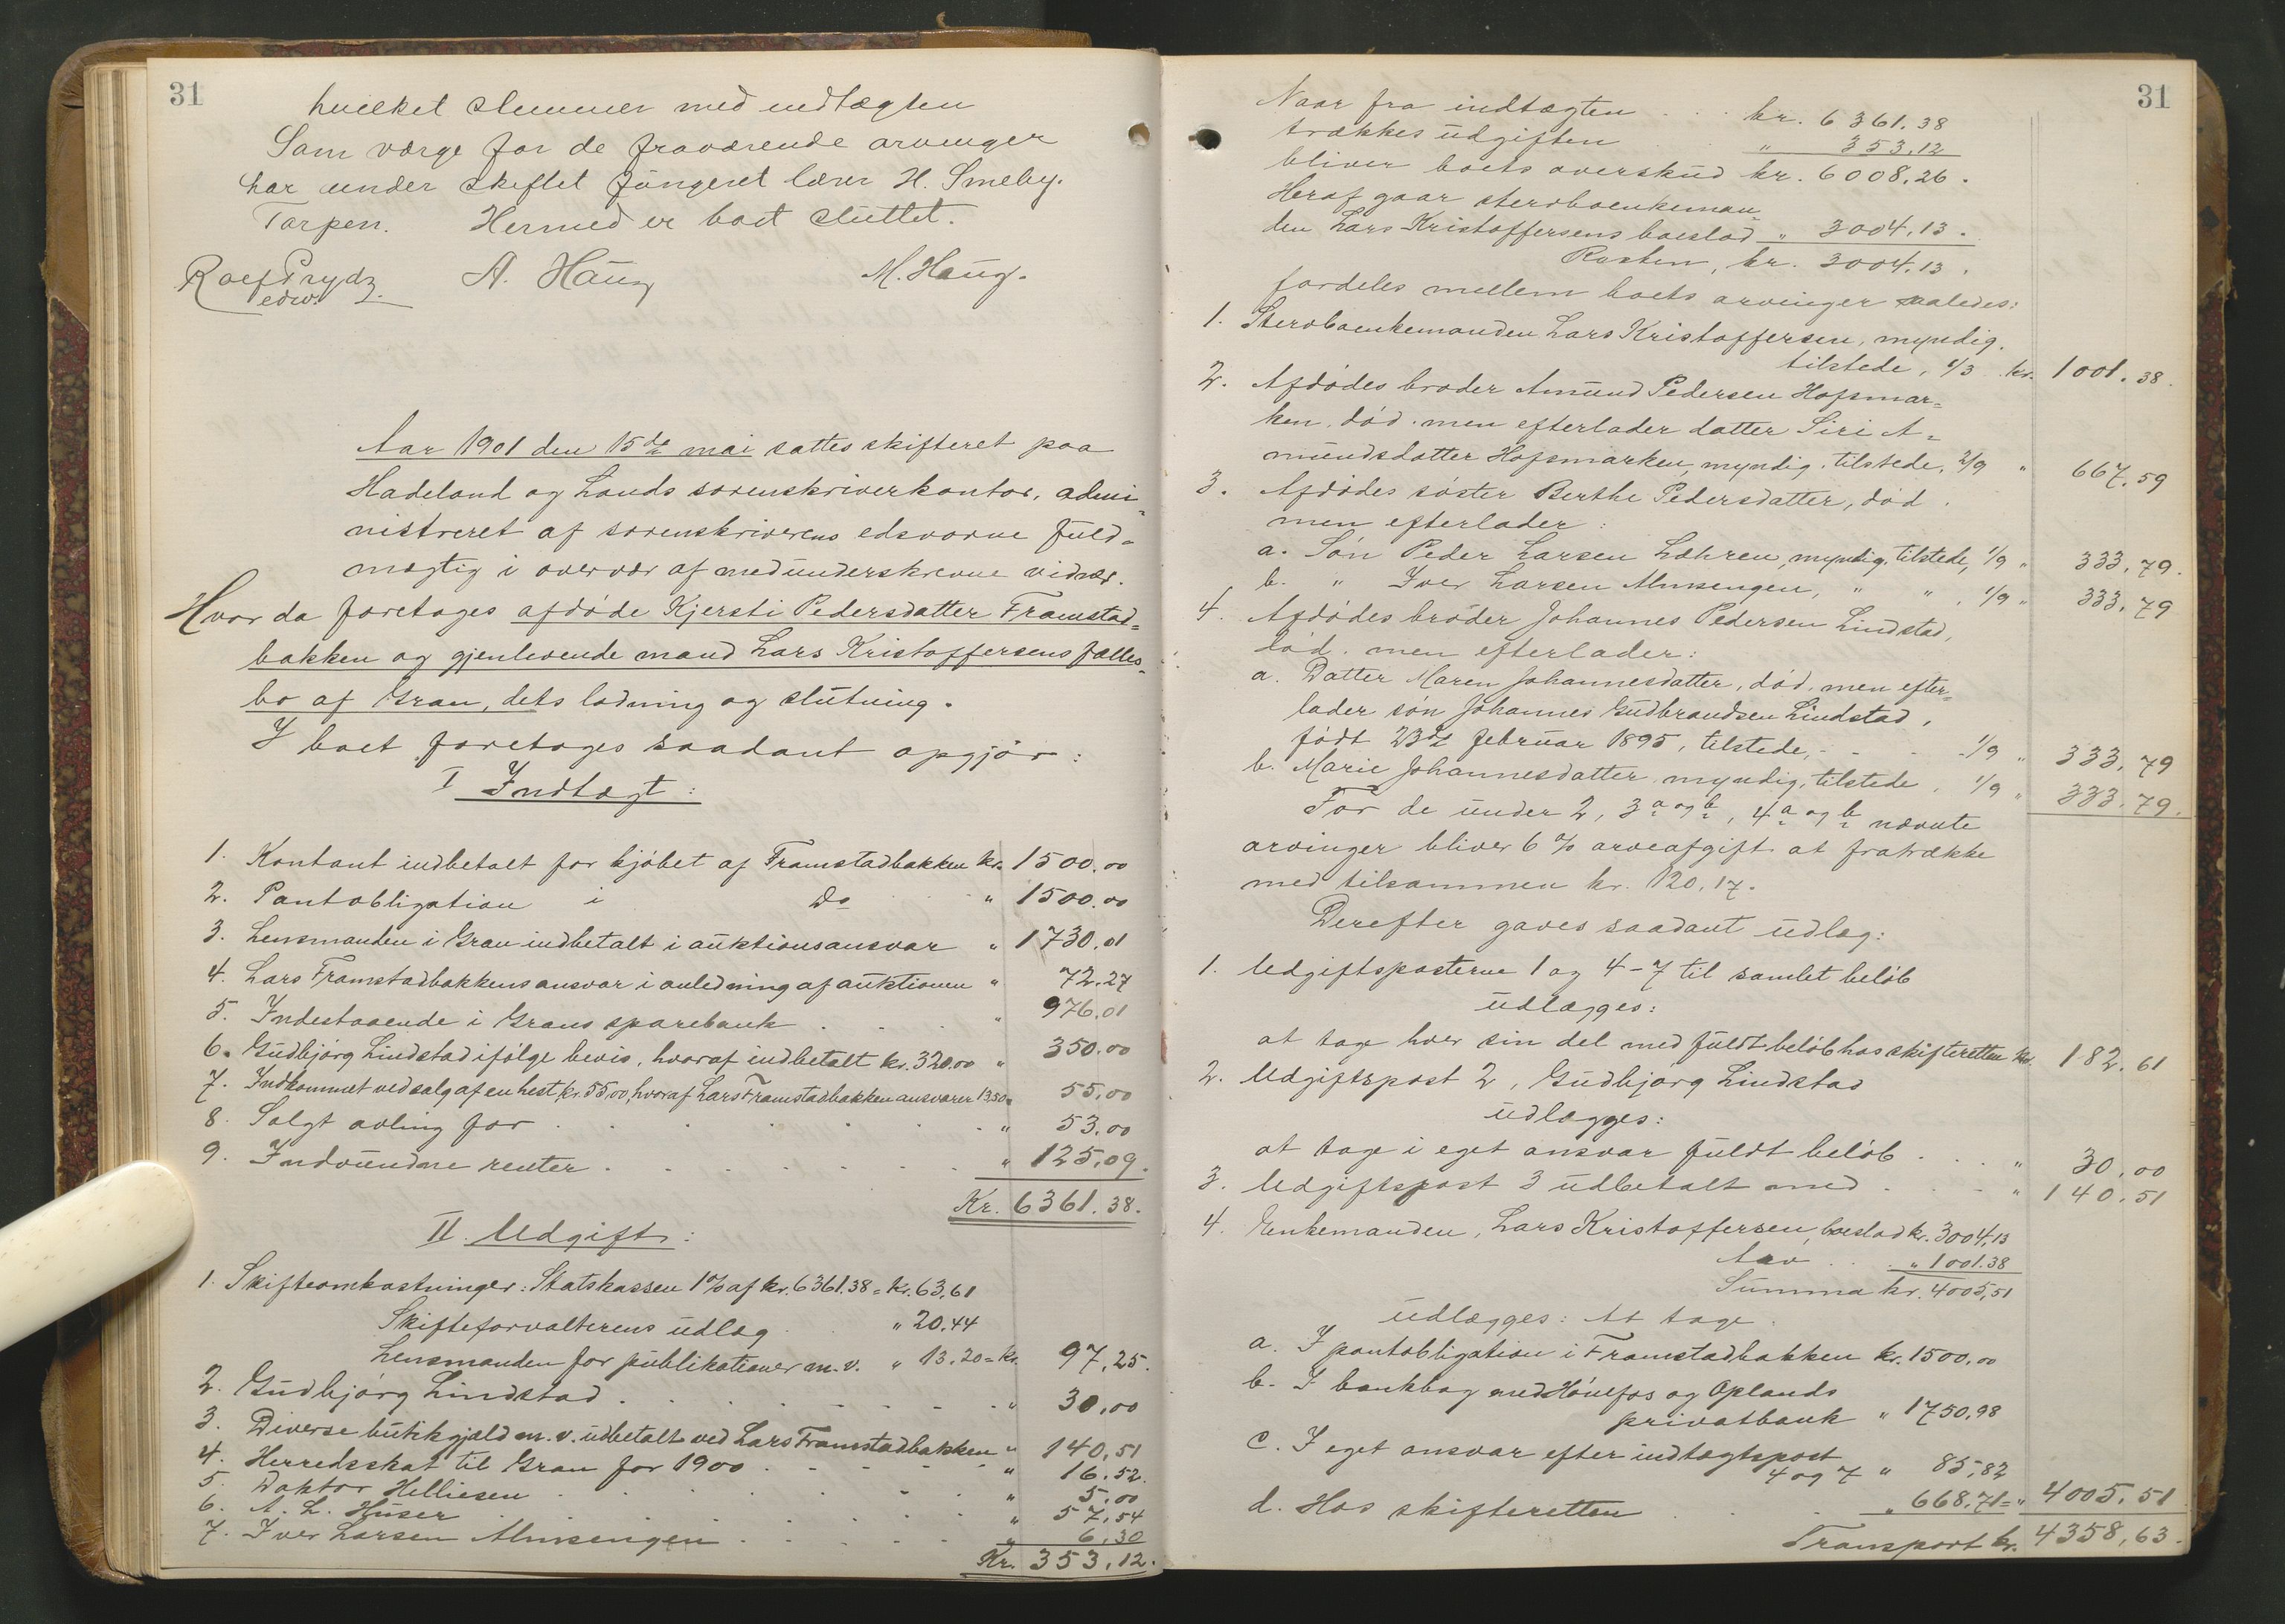 31
hvilket stemmer med indtægten
Som værge for de fraværende arvinger
har under skiftet fungeret lærer H. Smeby.
Torpen. Hermed er boet sluttet.
Rolf Prydz A. Haug M. Haug.
edsv.
Aar 1901 den 15de mai sattes skifteret paa
Hadeland og Lands sorenskriverkontor, admi-
nistreret af sorenskriverens edsvorne fuld-
mægtig i overvær af medunderskrevne vidner.
Hvor da foretages afdøde Kjersti Pedersdatter Framstad-
bakken og gjenlevende mand Lars Kristoffersens fælles-
bo af Gran, dets lodning og slutning.
I boet foretages saadant opgjør:
I Indtægt:
1. Kontant indbetalt for kjøbet af Framstadbakken kr. 1500.00
2. Pantobligation i Do " 1500.00
3. Lensmanden i Gran indbetalt i auktionsansvar " 1730.01
4. Lars Framstadbakkens ansvar i anledning af auktionen " 72.27
5. Indestaaende i Grans sparebank . . . " 976.01
6. Gudbjørg Lindstad ifølge bevis, hvoraf indbetalt kr. 320.00 " 350.00
7. Indkommet ved salg af en hest, kr. 55,00, hvoraf Lars Framstadbakken ansvarer 13,50 = 55,00
8. Solgt avling for . . . . . . " 53.00
9. Indvundne renter . . . . . . " 125,09.
Kr. 6361.38.
II. Udgift:
1. Skifteomkostninger: Statskassen 1% af kr. 6361.38 = kr. 63,61
Skifteforvalterens udlæg . " 20.44
Lensmanden for publikationer m.v. " 13.20 = kr. 97,25.
2. Gudbjørg Lindstad . . . . . . . " 30,00
3. Diverse butikgjæld m.v. udbetalt ved Lars Framstadbakken " 140,51
4. Herredsskat til Gran for 1900 . . . . . " 16.52.
5. Doktor Helliesen . . . . . . " 5,00
6. A. L. Huser . . . . . . . " 57,54
7. Iver Larsen Almsengen . . . . . " 6,30
Kr. 353,12.
31
Naar fra indtægten . . . kr. 6361.38
trækkes udgiften " 353,12
bliver boets overskud kr. 6008,26.
Heraf gaar sterboenkeman
den Lars Kristoffersens boeslod " 3004,13.
Resten, kr. 3004,13.
fordeles mellem boets arvinger saaledes:
1. Sterboenkemanden Lars Kristoffersen, myndig.
tilstede, 1/3 kr. 1001.38.
2. Afdødes broder Amund Pedersen Hofsmar-
ken, død. men efterlader datter Siri A-
mundsdatter Hofsmarken, myndig. tilstede, 2/9 " 667,59
3. Afdødes søster Berthe Pedersdatter, død.
men efterlader:
a. Søn Peder Larsen Læhren, myndig, tilstede, 1/9 " 333,79.
b. " Iver Larsen Almsengen, " " , 1/9 " 333,79
4. Afdødes broder Johannes Pedersen Lindstad,
død. men efterlader:
a. Datter Maren Johannesdatter, død, men efter-
lader søn Johannes Gudbrandsen Lindstad,
født 23de februar 1895, tilstede, - - - 1/9 " 333,79
b. Marie Johannesdatter myndig, tilstede, 1/9 " 333,79.
For de under 2, 3 a og b, 4 a og b nævnte
arvinger bliver 6 % arveafgift at fratrække
med tilsammen kr. 120,17.
Derefter gaves saadant udlæg:
1. Udgiftsposterne 1 og 4-7 til samlet beløb
udlægges:
at tage hver sin del med fuldt beløb hos skifteretten kr. 182,61
2. Udgiftspost 2, Gudbjørg Lindstad
udlægges:
at tage i eget ansvar fuldt beløb . . . " 30,00
3. Udgiftspost 3 udbetalt med . . . . " 140,51
4. Enkemanden, Lars Kristoffersen, boeslod kr. 3004,13
Arv . . . " 1001.38
Summa kr. 4005,51
udlægges: At tage:
a. I pantobligation i Framstadbakken kr. 1500,00
b. I bankbog med Hønefos og Oplands
privatbank " 1750,98
c. I eget ansvar efter indtægtspost
4 og 7 " 85,82
d. Hos skifteretten . . . " 668,71 = " 4005,51
Transport kr. 4358,63.